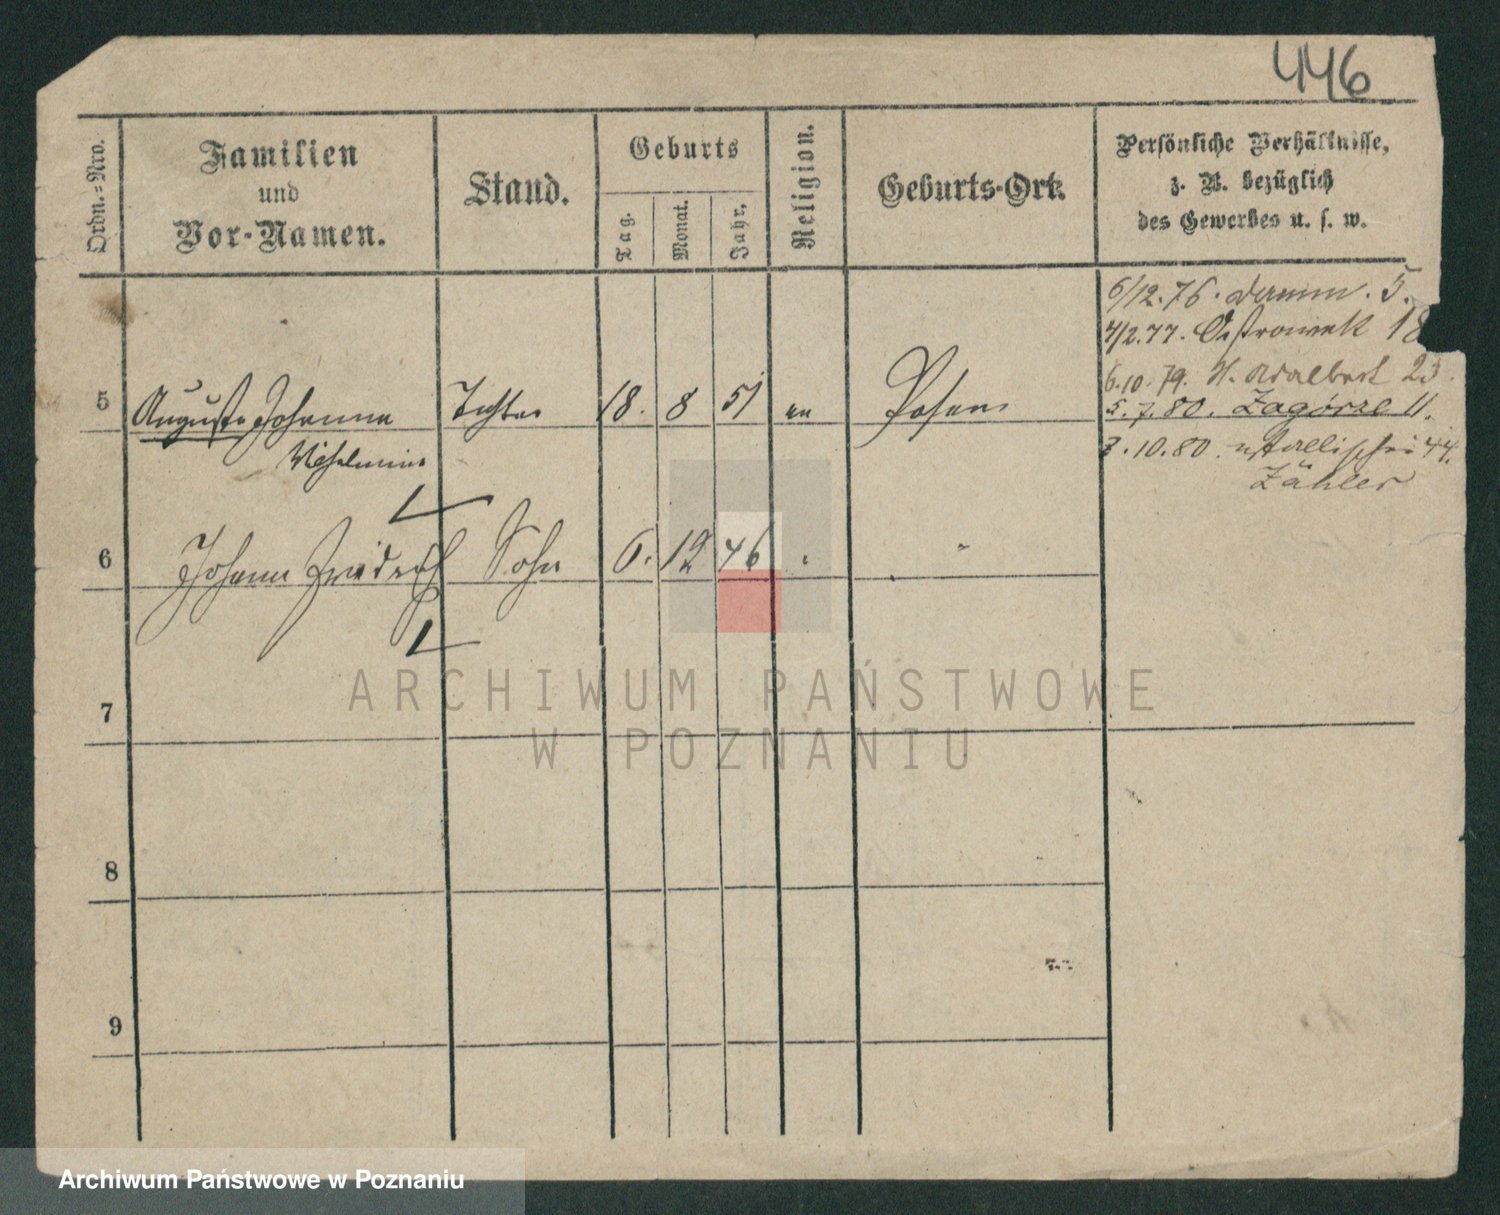 446
Ordn.=Nro.
Familien
und
Vor-Namen.
Stand.
Geburts
Tag.
Monat.
Jahr.
Religion.
Geburts-Ort.
Persönliche Verhältnisse,
z. B. bezüglich
des Gewerbes u. s. w.
6/12.76. Damm. 5.
4/2.77. Ostrowek 18
6.10.79. St. Adalbert 23.
5 Auguste Johanna Tochter 18. 8 51 ev Posen
5.7.80. Zagórze 11.
Wilhelmine
7.10.80. Wallischei 44.
Zähler
6 Johann Friedrich Sohn 6. 12 46 " "
7
8
9
ARCHIWUM PAŃSTWOWE
W POZNANIU
Archiwum Państwowe w Poznaniu